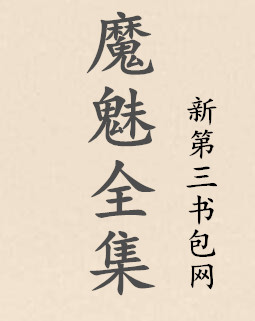 魔魅全集
新第三书包网